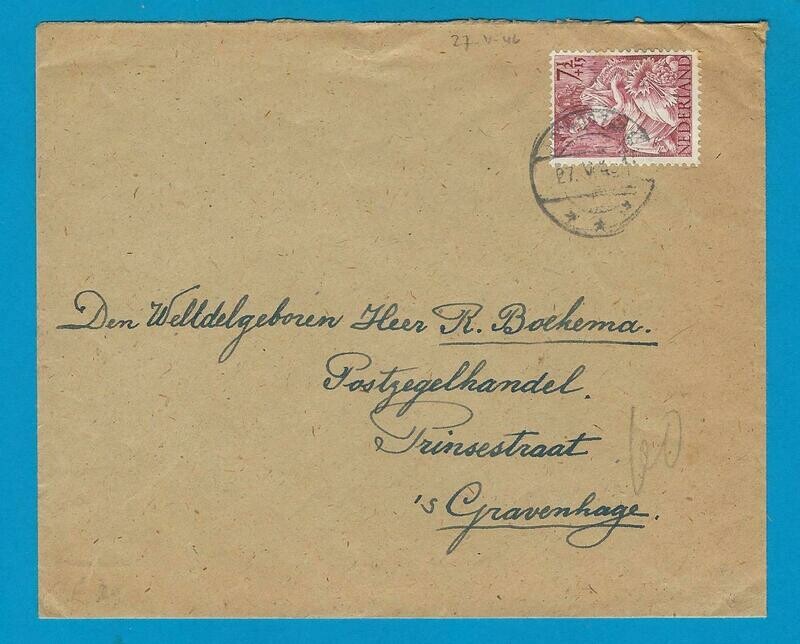 27-V-46
7½
+15
NEDERLAND
27. V 4
Den Weltdelgeboren Heer R. Boekema.
Postzegelhandel.
Prinsestraat
's Gravenhage.
60